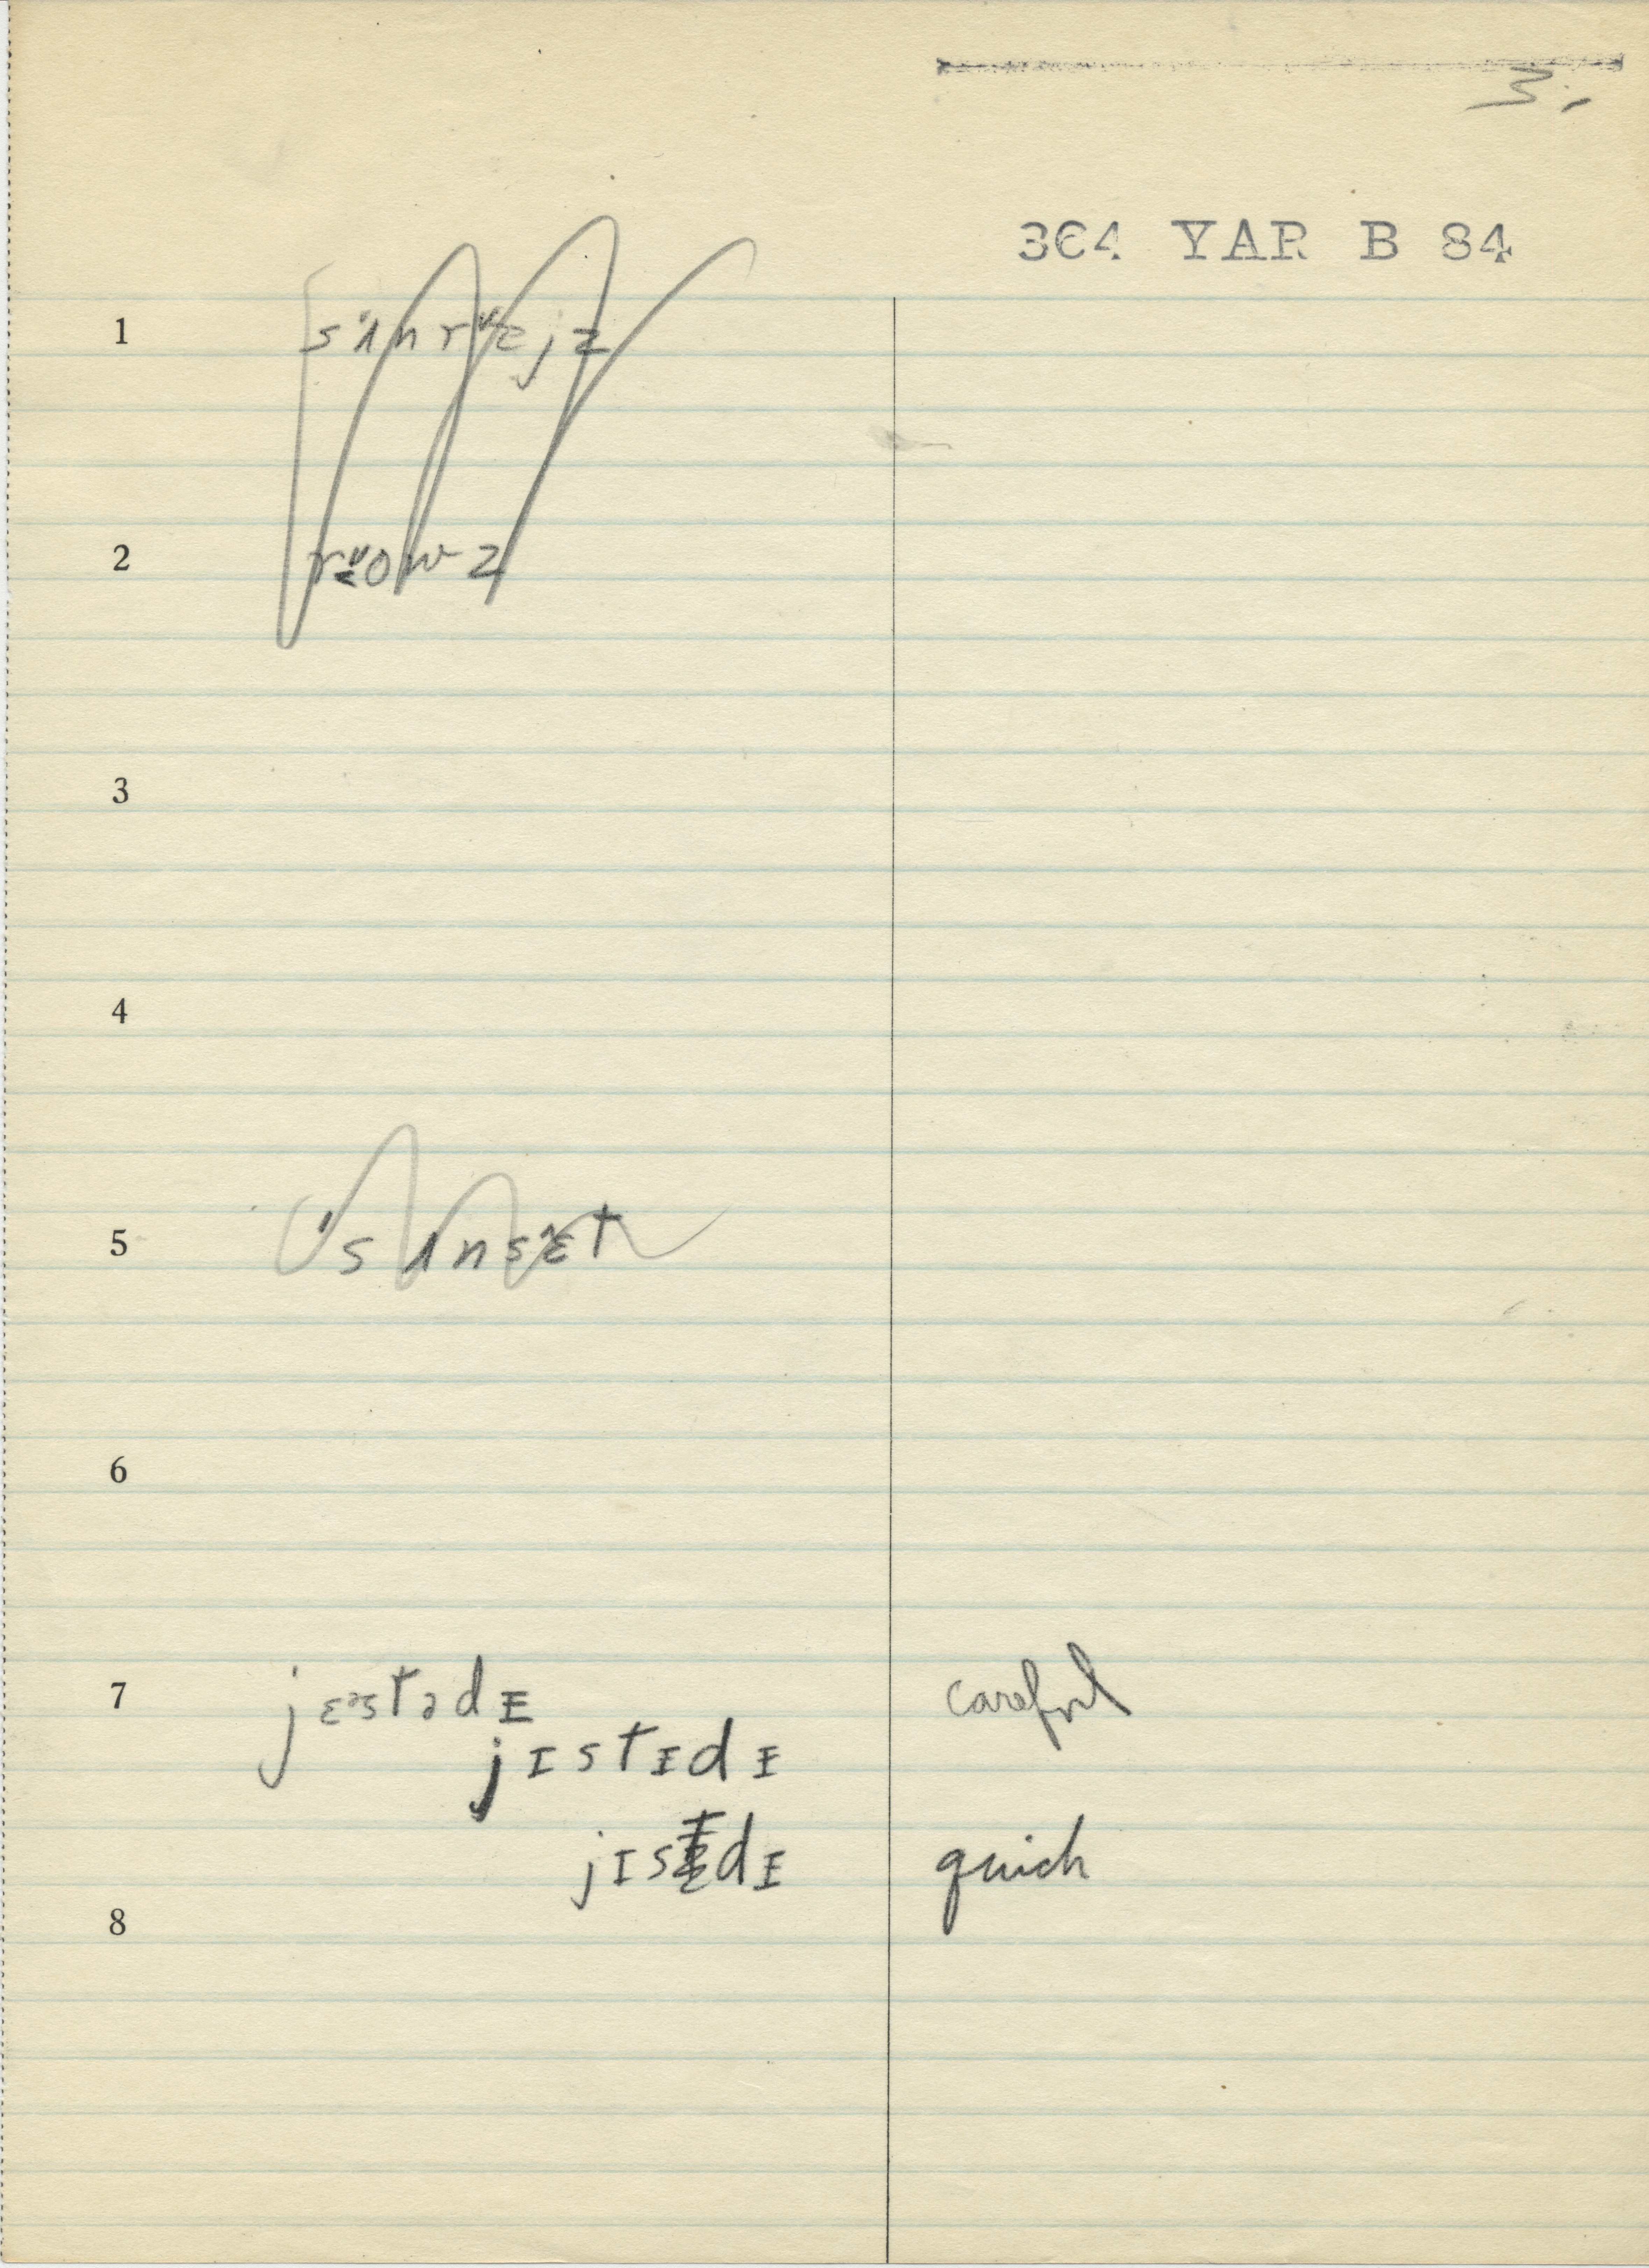 3.
364 YAR B 84
1 sʌ́nrɛ̌jz
2 rɛ̌owz
3
4
5 'sʌnsɛ̂t
6
7 jɛəstədɪ careful
jɪstɪdɪ
jɪstɪdɪ quick
8